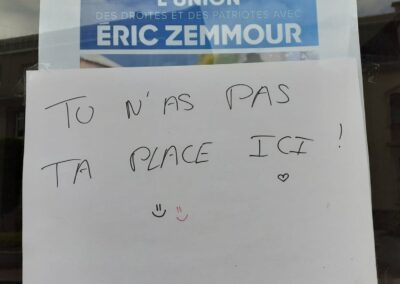 L'UNION
DES DROITES ET DES PATRIOTES AVEC
ÉRIC ZEMMOUR
TU N'AS PAS
TA PLACE ICI !